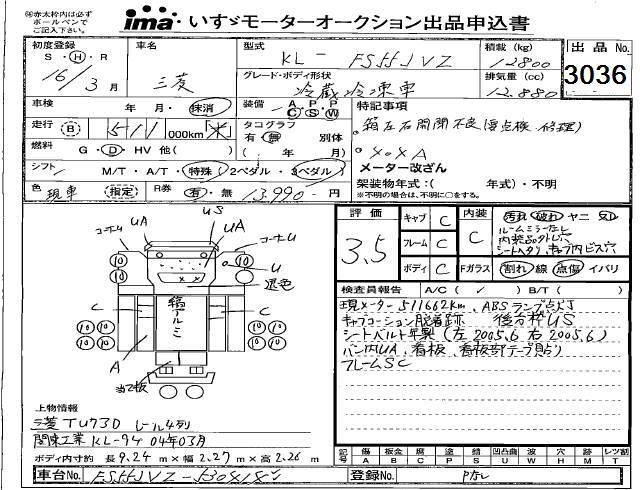 ㊟赤太枠内は必ず
ボールペンで
ご記入下さい。
ima いすゞモーターオークション出品申込書
初度登録 S・H・R
16年 3月
車名
三菱
型式
KL-
グレード・ボディ形状
冷蔵冷凍車
積載(kg)
12800
排気量(cc)
12.880
出品No.
3036
車検 年・月・抹消
装備 A・P・P
C・S・W
走行 B 511 000km「米」
タコグラフ
有・無 別体
( 年 月)
燃料 G・D・HV 他( )
シフト M/T・A/T・特殊(2ペダル・3ペダル)
色 現車 (指定) R券 有・無 13,990-円
特記事項
○箱左右開閉不良(要点検・修理)
○X○XA
メーター改ざん
架装物年式:( 年式)・不明
※不明の場合は、不明に○をする。
US
UA
UA
コーナーU
コーナーU
U
退色
10
10
C
C
箱アルミ
A
当て板
評価
3.5
キャブ C
フレーム C
ボディ C
内装
C
Fガラス
汚れ 破れ ヤニ
ルームミラーなし
割れ 線 点傷 イバリ
検査員報告 A/C( ✓ ) B/T( )
現メーター511662km、ABSランプ点灯
キャブコーション脱着跡 後分枠US
シートベルト年製(左2005.6 右2005.6)
バン内UA、看板、看板部テープ貼り
フレームSC
上物情報
三菱 TU73D レール4列
関東工業 KL-94 04年03月
ボディ内寸約 長9.24m×幅2.27m×高2.26m
記号
傷 A
板金 B
腐 C
塗 P
錆 S
凹凸曲 U
波 W
穴 H
汚 M
レツ割 T
車台No.
登録No.